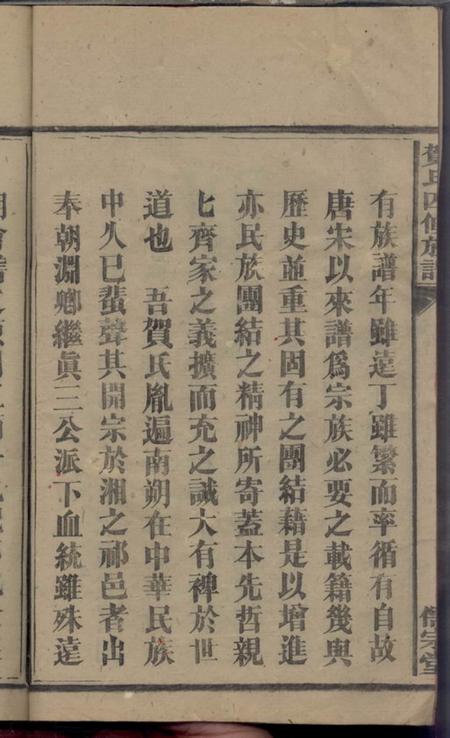 賀氏四修族譜
儒宗堂
有族譜年雖遠丁雖繁而率循有自故
唐宋以來譜爲宗族必要之載籍幾與
歷史並重其固有之團結藉是以增進
亦民族團結之精神所寄蓋本先哲親
匕齊家之義擴而充之誠大有裨於世
道也　吾賀氏胤遍南朔在中華民族
中久已蜚聲其開宗於湘之祁邑者出
奉朝淵鄉繼眞三公派下血統雖殊遠